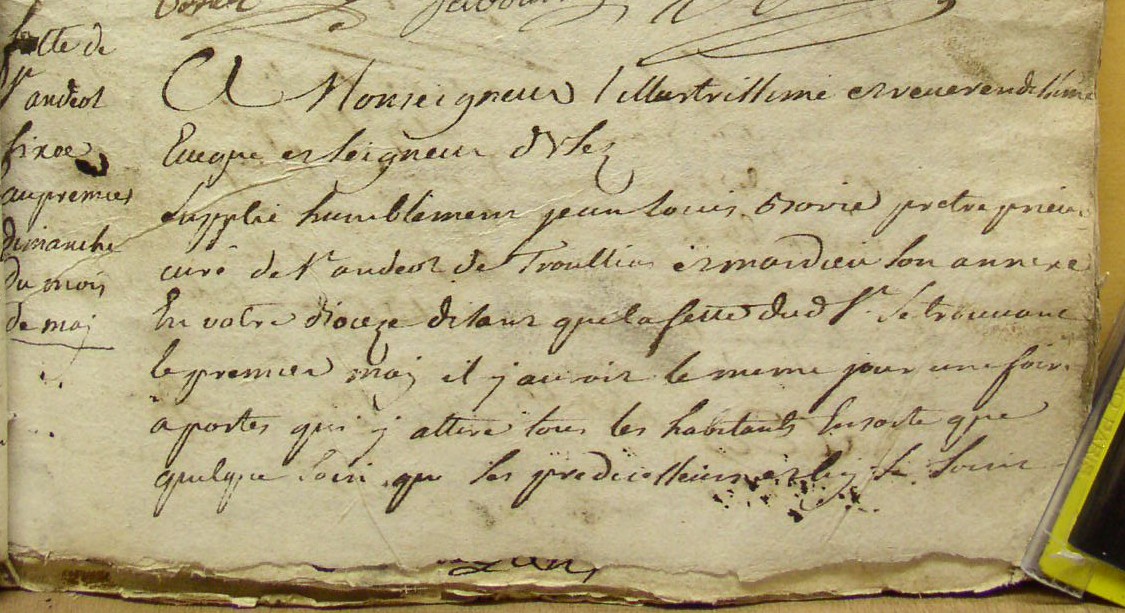 fette de
St andeol
fixée
au premier
dimanche
du mois
de maj
A Monseigneur l'illustrissime et reverendissime
Eveque et seigneur d'Usez
Supplie humblement jean Louis pretre prieur
curé de St andeol de Troullias et mardieu son annexe
En votre dioceze disant que la fette dud St se trouvant
le premier maj il j avoit le meme jour une foire
a portes qui j attire tous les habitants En sorte que
quelque soin que ses predecesseurs et luj se soint